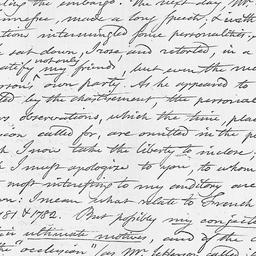 ling the embargo. The next day, Mr.
made a long speech, & with
tions intermingled some personalities.
sat down, I rose and retorted, in a
not only
my friends, but even the
own party. As he appeared to
ed by the chastisement, the personal
observations, which the time, place
called for, are omitted in the
I now take the liberty to inclose,
I must apologize to you, to whom
most interesting to my auditory are
I mean what relate to French
1781 & 1782. But possibly my conjectures
ultimate motives, and of the
the "occlusion" (as Mr. Jefferson called